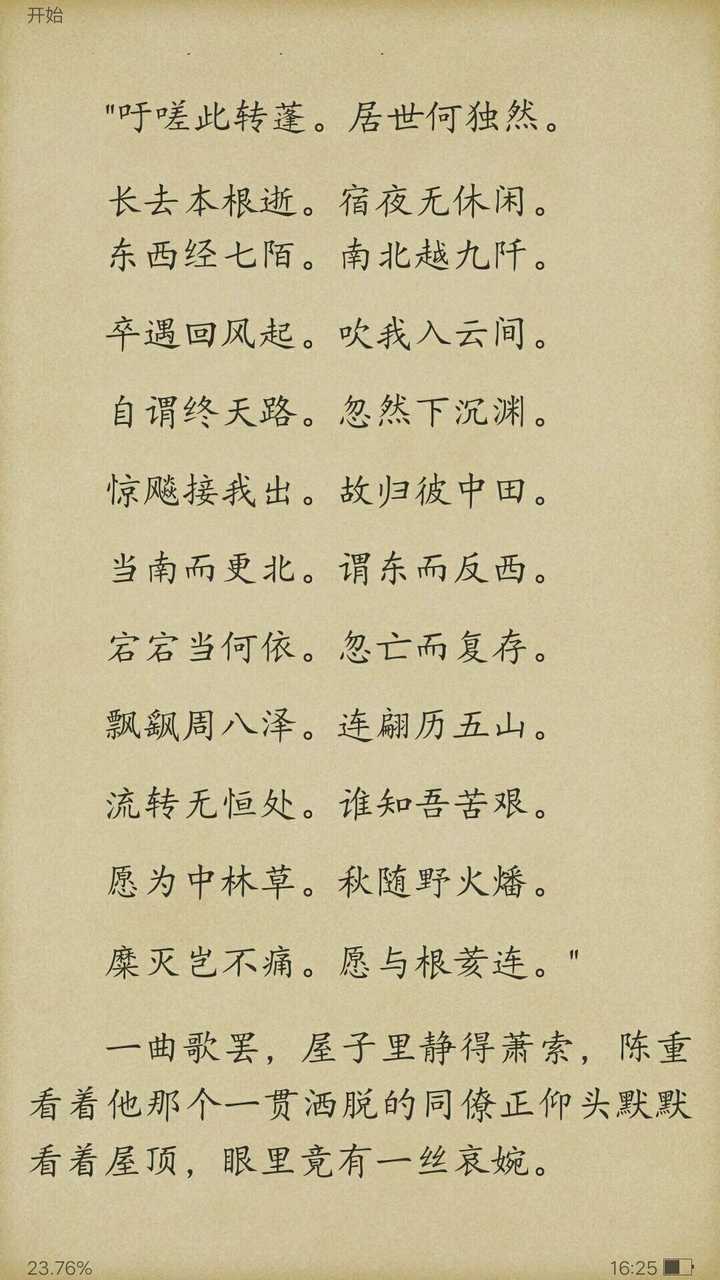 开始
"吁嗟此转蓬。居世何独然。
长去本根逝。宿夜无休闲。
东西经七陌。南北越九阡。
卒遇回风起。吹我入云间。
自谓终天路。忽然下沉渊。
惊飚接我出。故归彼中田。
当南而更北。谓东而反西。
宕宕当何依。忽亡而复存。
飘飖周八泽。连翩历五山。
流转无恒处。谁知吾苦艰。
愿为中林草。秋随野火燔。
糜灭岂不痛。愿与根荄连。"
一曲歌罢，屋子里静得萧索，陈重
看着他那个一贯洒脱的同僚正仰头默默
看着屋顶，眼里竟有一丝哀婉。
23.76%
16:25